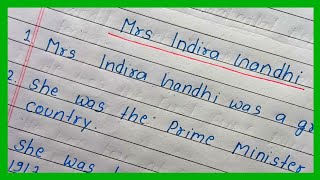 Mrs Indira Gandhi
1. Mrs Indira Gandhi was a gr
2. She was the Prime Minister
country.
She was